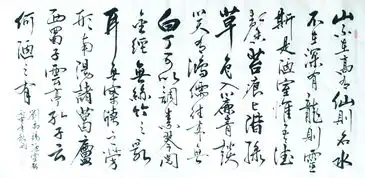 山不在高有仙則名水
不在深有龍則靈
斯是陋室惟吾德
馨苔痕上階綠
草色入簾青談
笑有鴻儒往來無
白丁可以調素琴閱
金經無絲竹之亂
耳無案牘之勞
形南陽諸葛廬
西蜀子雲亭孔子云
何陋之有
劉禹錫陋室銘